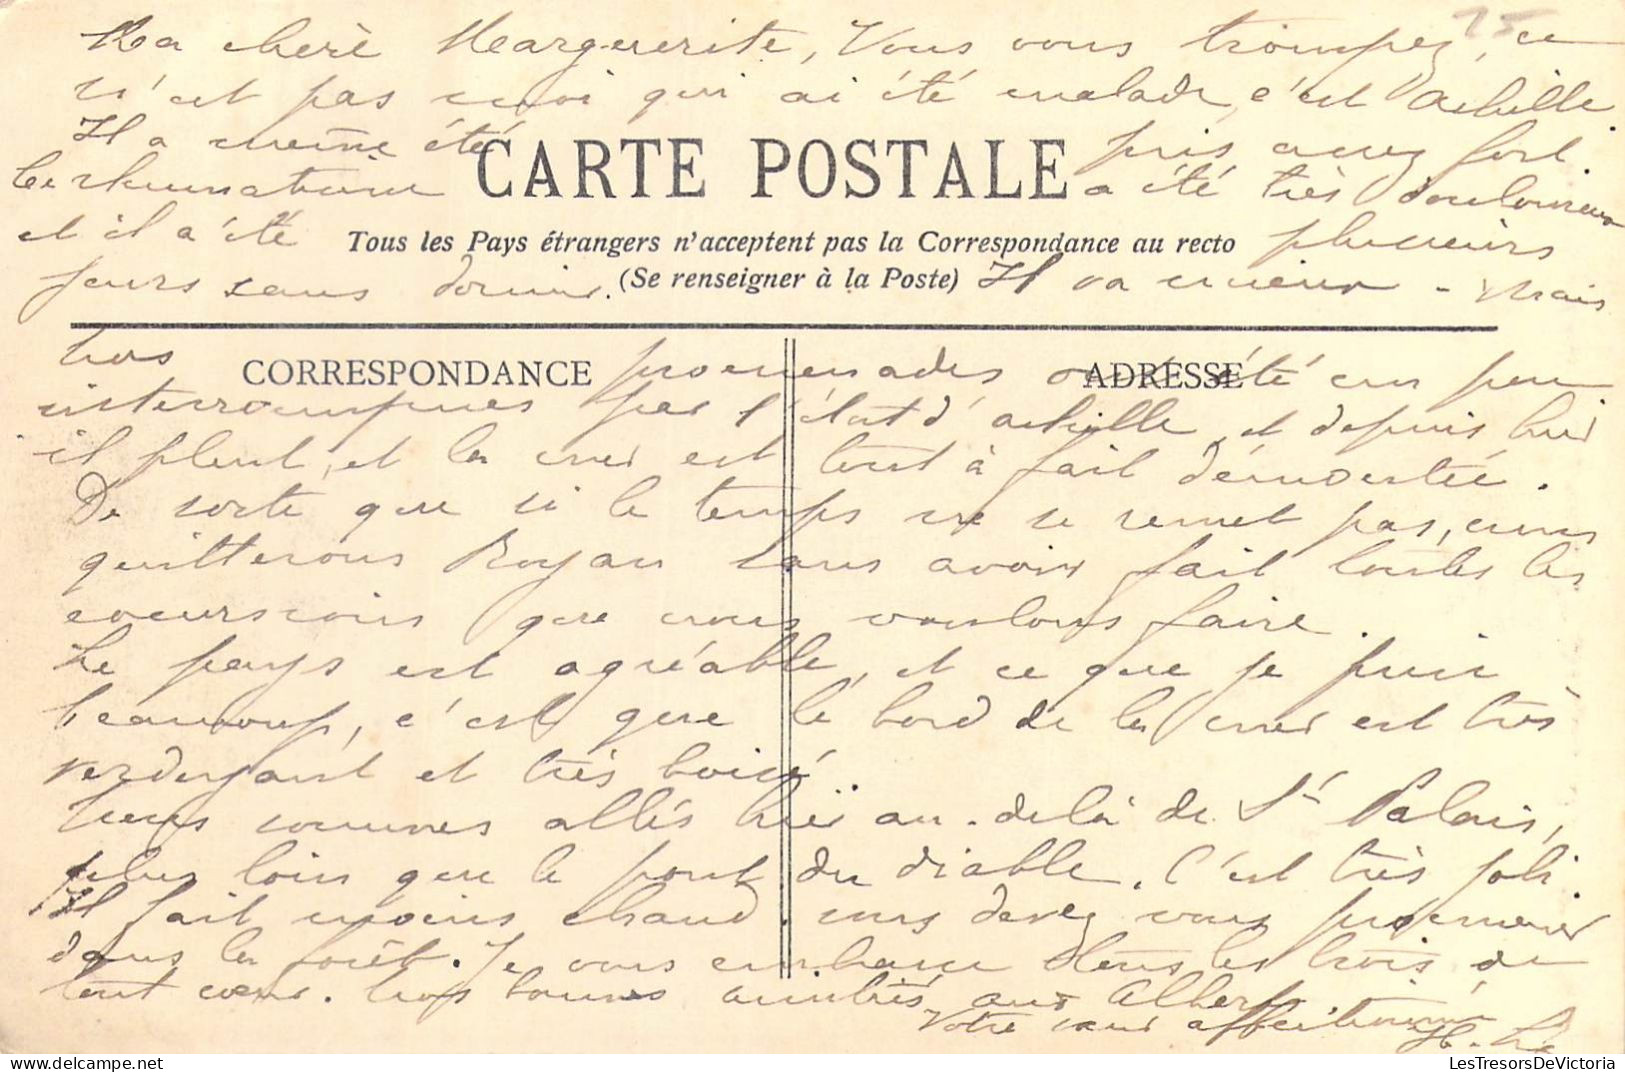 Ma chère Marguerite, Vous vous trompez, ce
n'est pas moi qui ai été malade, c'est Achille.
Il a même été pris assez fort.
CARTE POSTALE
Le rhumatisme a été très douloureux
et il a été plusieurs
Tous les Pays étrangers n'acceptent pas la Correspondance au recto
(Se renseigner à la Poste)
jours sans dormir. Il va mieux - Mais
nos promenades ont été un peu
CORRESPONDANCE
ADRESSE
interrompues par l'état d'Achille, et depuis hier
il pleut, et la mer est tout à fait démontée.
De sorte que si le temps ne se remet pas, nous
quitterons Royan sans avoir fait toutes les
excursions que nous voulons faire.
Le pays est agréable, et ce que je
beaucoup, c'est que le bord de la mer est très
verdoyant et très boisé.
Nous sommes allés hier au-delà de St Palais,
plus loin que le pont du diable. C'est très joli.
Il fait moins chaud. vous devez vous promener
dans la forêt. Je vous embrasse tous les trois de
tout cœur. Nos bonnes amitiés aux Albert
Votre sœur affectionnée
H. Le
LesTresorsDeVictoria